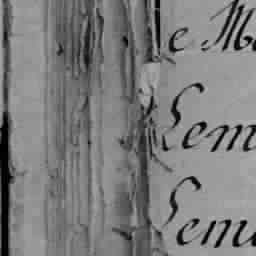 e M
Lem
Lem